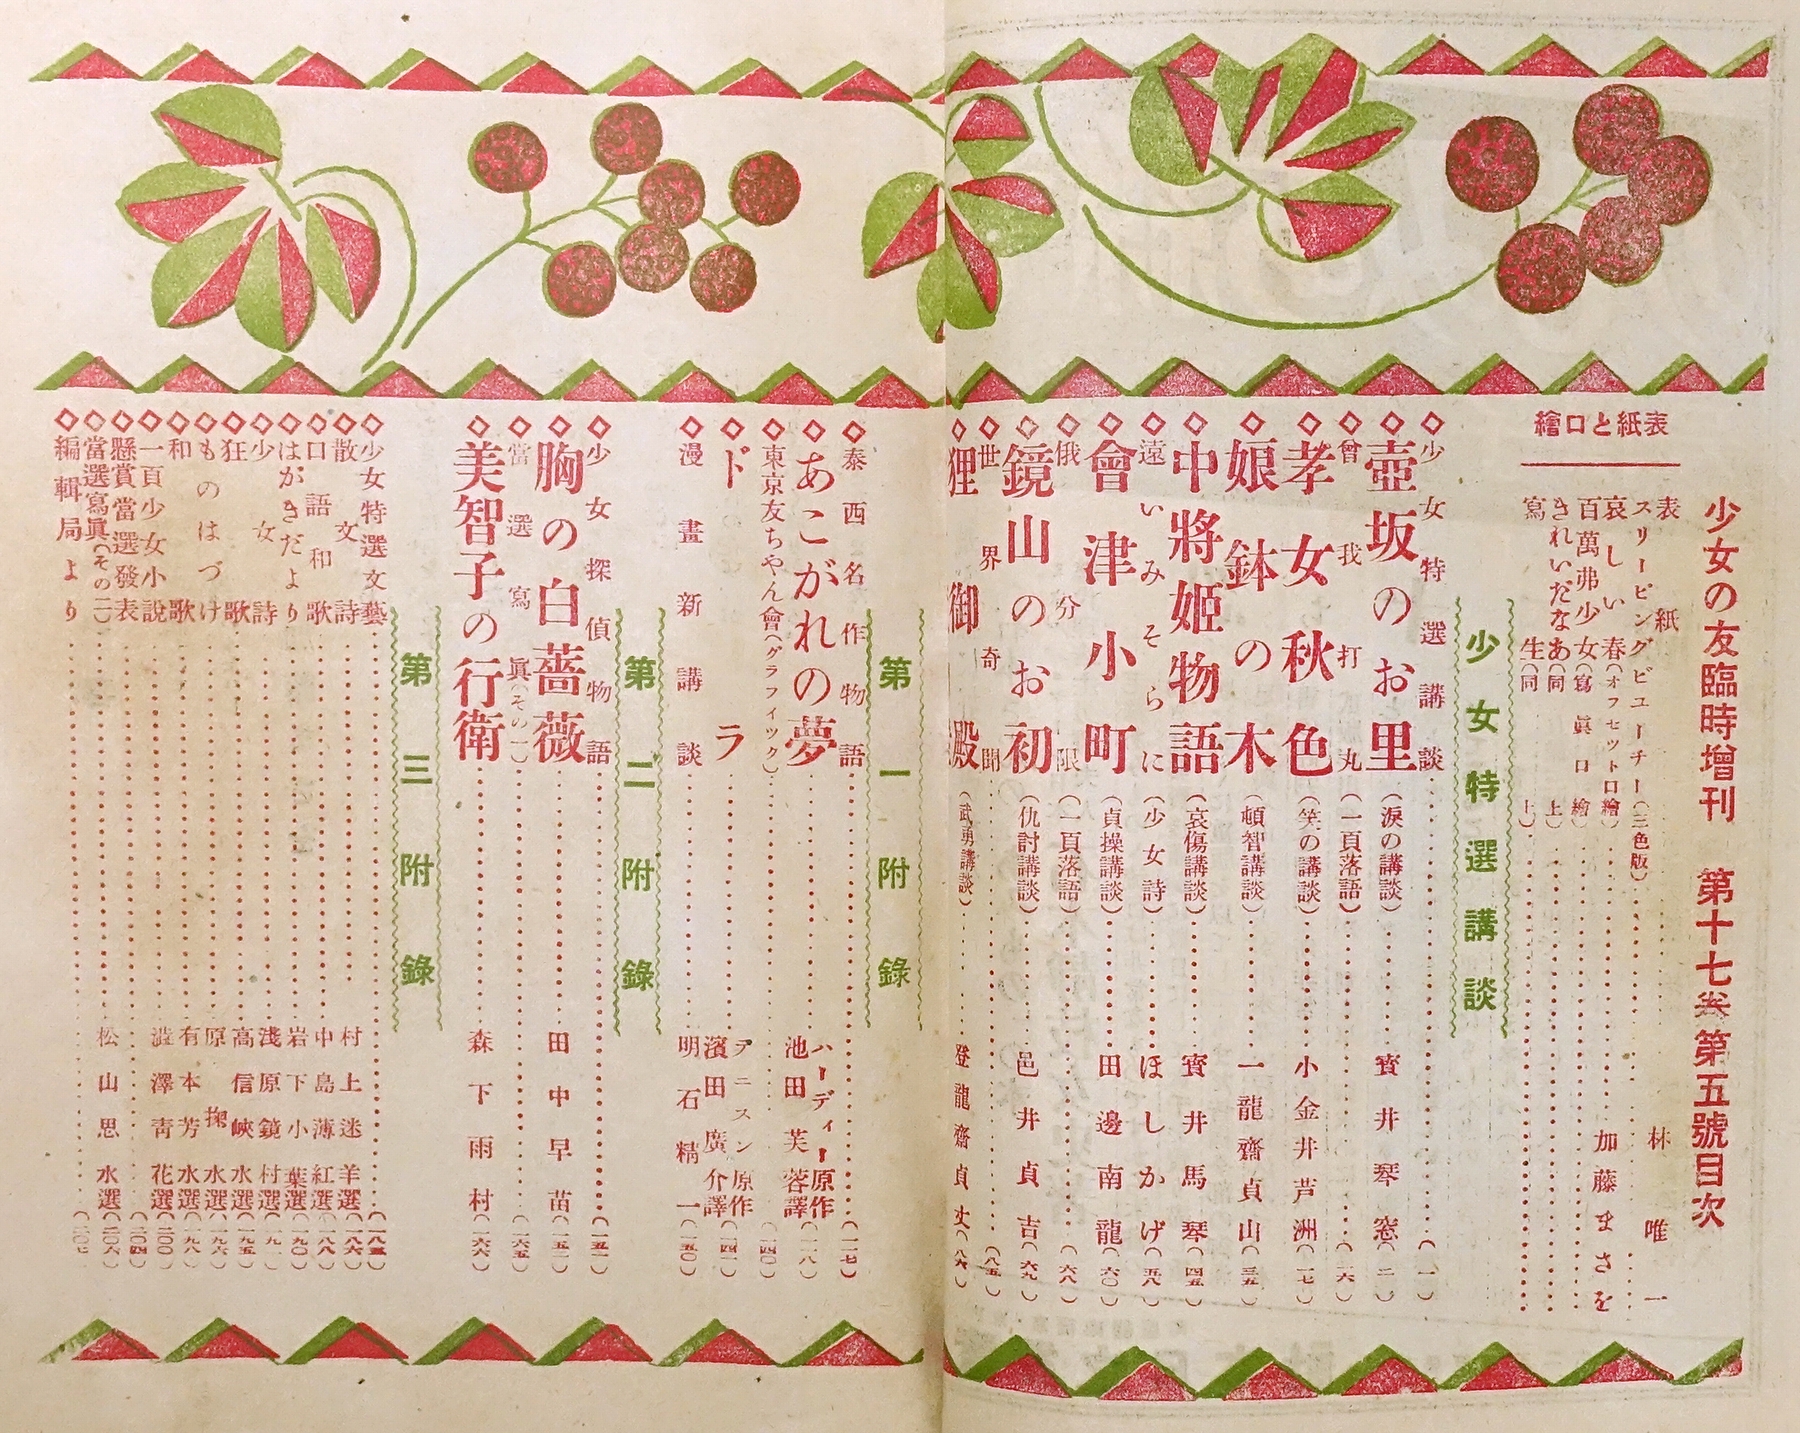 少女の友臨時増刊　第十七巻第五號目次
表紙と口繪
表紙……林唯一
スリーピングビューチー(三色版)
哀しい春(オフセット口繪)……加藤まさを
百萬弗少女(寫眞口繪)
きれいだなあ(同上)
寫生(同上)
少女特選講談
少女特選講談……(一)
壺坂のお里(涙の講談)……寳井琴窓(二)
曾我打丸(一頁落語)……(一六)
孝女秋色(笑の講談)……小金井芦洲(一七)
娘鉢の木(頓智講談)……一龍齋貞山(三五)
中將姫物語(哀傷講談)……寳井馬琴(四五)
遠いみそらに(少女詩)……ほしかげ(五八)
會津小町(貞操講談)……田邊南龍(六〇)
俄分限(一頁落語)……(六八)
鏡山のお初(仇討講談)……邑井貞吉(六九)
世界奇聞……(八五)
狸御殿(武勇講談)……登龍齋貞丈(八六)
第一附錄
泰西名作物語……(一一七)
あこがれの夢……ハーディー原作 池田芙蓉譯(一一八)
東京友ちやん會(グラフィック)……(一四〇)
ドラ……テニスン原作 濱田廣介譯(一四一)
漫畫新講談……明石精一(一五〇)
第二附錄
少女探偵物語……(一五一)
胸の白薔薇……田中早苗(一五二)
當選寫眞(その一)……(一六五)
美智子の行衛……森下雨村(一六六)
第三附錄
少女特選文藝……(一八五)
散文詩……村上迷羊選(一八六)
口語和歌……中島薄紅選(一八八)
はがきだより……岩下小葉選(一九〇)
少女詩……淺原鏡村選(一九一)
狂歌……高信峽水選(一九五)
ものはづけ……原掬水選(一九六)
和歌……有本芳水選(一九八)
一百少女小說……澁澤靑花選(二〇〇)
懸賞當選發表……(二〇四)
當選寫眞(その二)……松山思水選(二〇六)
編輯局より……(二〇七